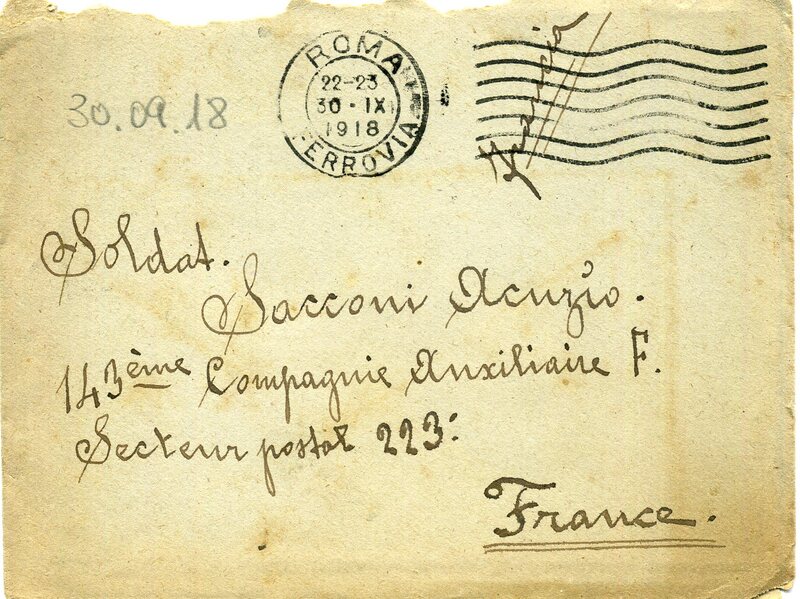 ROMA
22-23
30·IX
1918
FERROVIA
Francia
30.09.18
Soldat.
Sacconi Acuzio.
143ème Compagnie Auxiliaire F.
Secteur postal 223:
France.